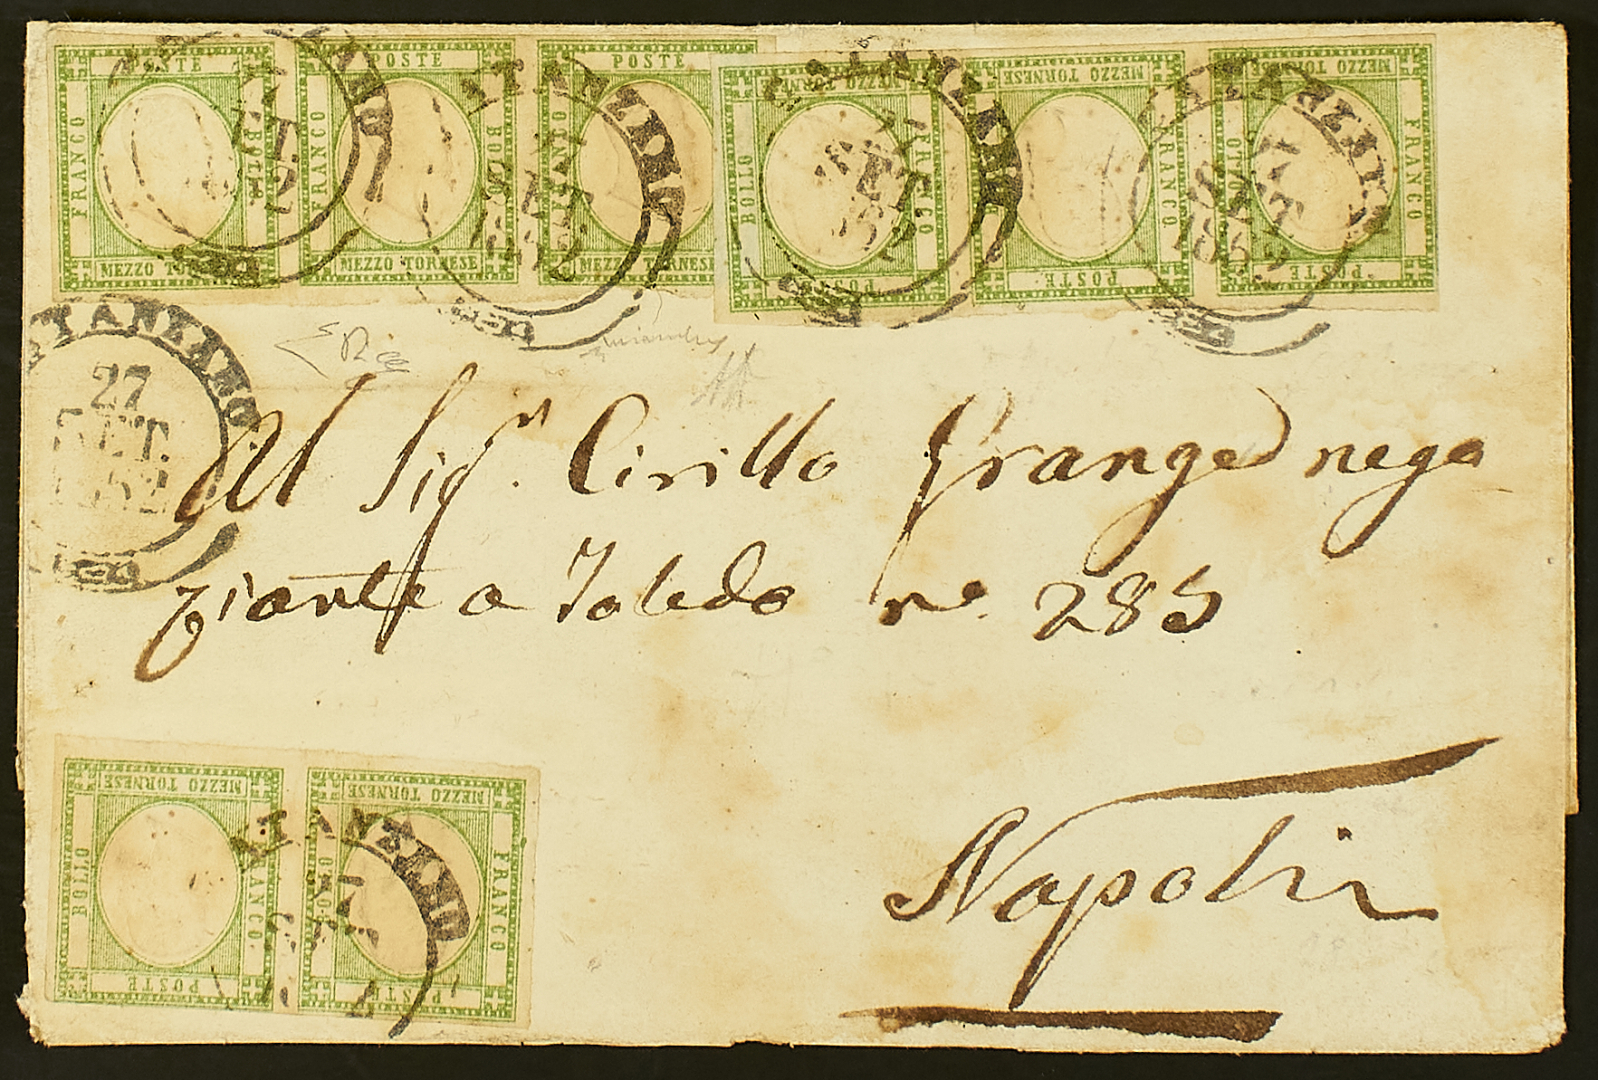 POSTE
FRANCO
BOLLO
MEZZO TORNESE
POSTE
FRANCO
BOLLO
MEZZO TORNESE
POSTE
MEZZO TORNESE
MEZZO TORNESE
BOLLO
FRANCO
POSTE
MEZZO TORNESE
FRANCO
POSTE
MEZZO TORNESE
BOLLO
FRANCO
POSTE
27
SET
1862
CATANZARO
27
SET.
1862
Al Sigr. Cirillo Granged nego
ziante a Toledo no. 285
Napoli
MEZZO TORNESE
BOLLO
FRANCO
POSTE
MEZZO TORNESE
BOLLO
FRANCO
POSTE